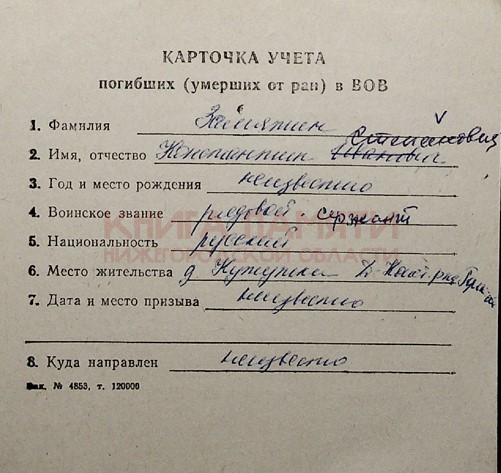 КАРТОЧКА УЧЕТА
погибших (умерших от ран) в ВОВ
1. Фамилия Замятин
2. Имя, отчество Константин Иванович Степанович
3. Год и место рождения неизвестно
4. Воинское звание рядовой сержант
КНИГА ПАМЯТИ
5. Национальность русский
НИЖЕГОРОДСКОЙ ОБЛАСТИ
6. Место жительства д.
7. Дата и место призыва неизвестно
8. Куда направлен неизвестно
Зак. № 4853, т. 120000